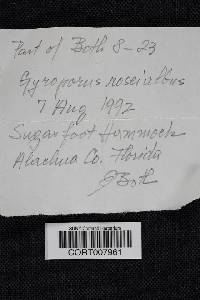 Part of Both 8-23
Gyroporus roseialbus
7 Aug 1992
Sugarfoot Hammock
Alachua Co. Florida
E Both
SUNY Cortland Herbarium
CORT007961